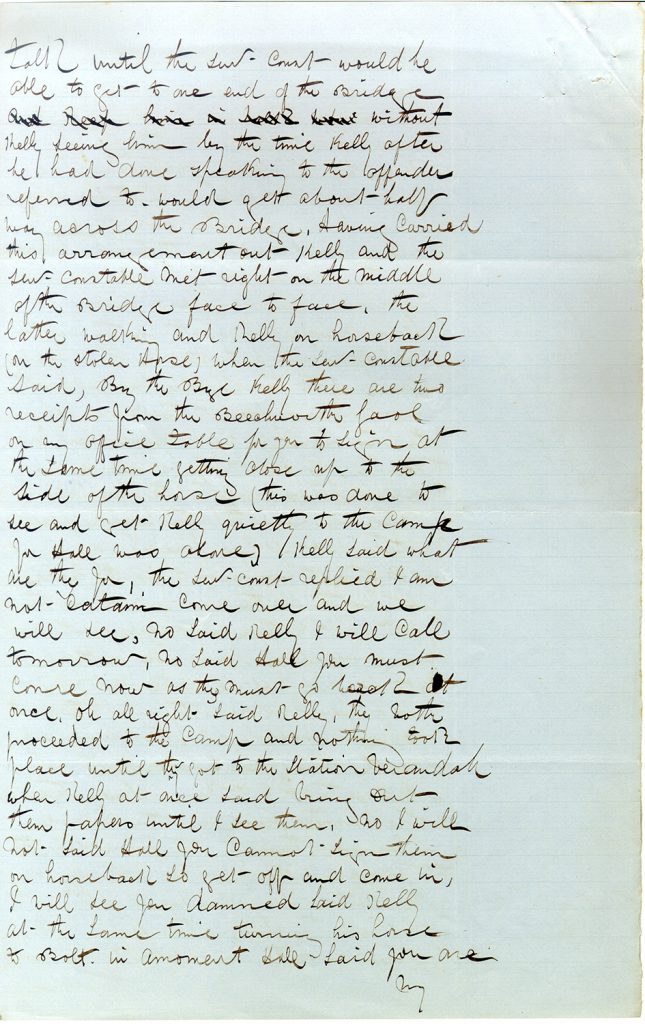 talk until the Sen- Const- would be
able to get to one end of the Bridge
and keep him in without
Kelly seeing him by the time Kelly after
he had done speaking to the offender
referred to- would gett about half
way across the Bridge, Having Carried
this arrangement out- Kelly and the
Sen- Constable met right on the middle
of the Bridge face to face, the
latter walking and Kelly on horseback
(on the stolen Horse) when the Sen- Constable
Said, By the Bye Kelly there are two
receipts from the Beechworth Gaol
on my office Table for you to Sign at
the Same time getting close up to the
Side of the horse (this was done to
see and get Kelly quietly to the Camp
for Hall was alone) Kelly Said what
are the for, the Sen- Const- replied I am
not- Catain Come over and we
will see, No Said Kelly I will Call
tomorrow, No Said Hall you must
Come Now as they must go back at
once. Oh all right Said Kelly, the both
proceeded to the Camp and nothing took
place until they got to the Station Verandah
when Kelly at once Said bring out
them papers until I see them, No I will
not Said Hall you Cannot Sign them
on horseback So get off and Come in,
I will see you damned Said Kelly
at the Same time turning his horse
to Bolt. in amoment Hall Said you are
My